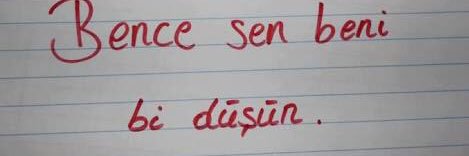 Bence sen beni
bi düşün.